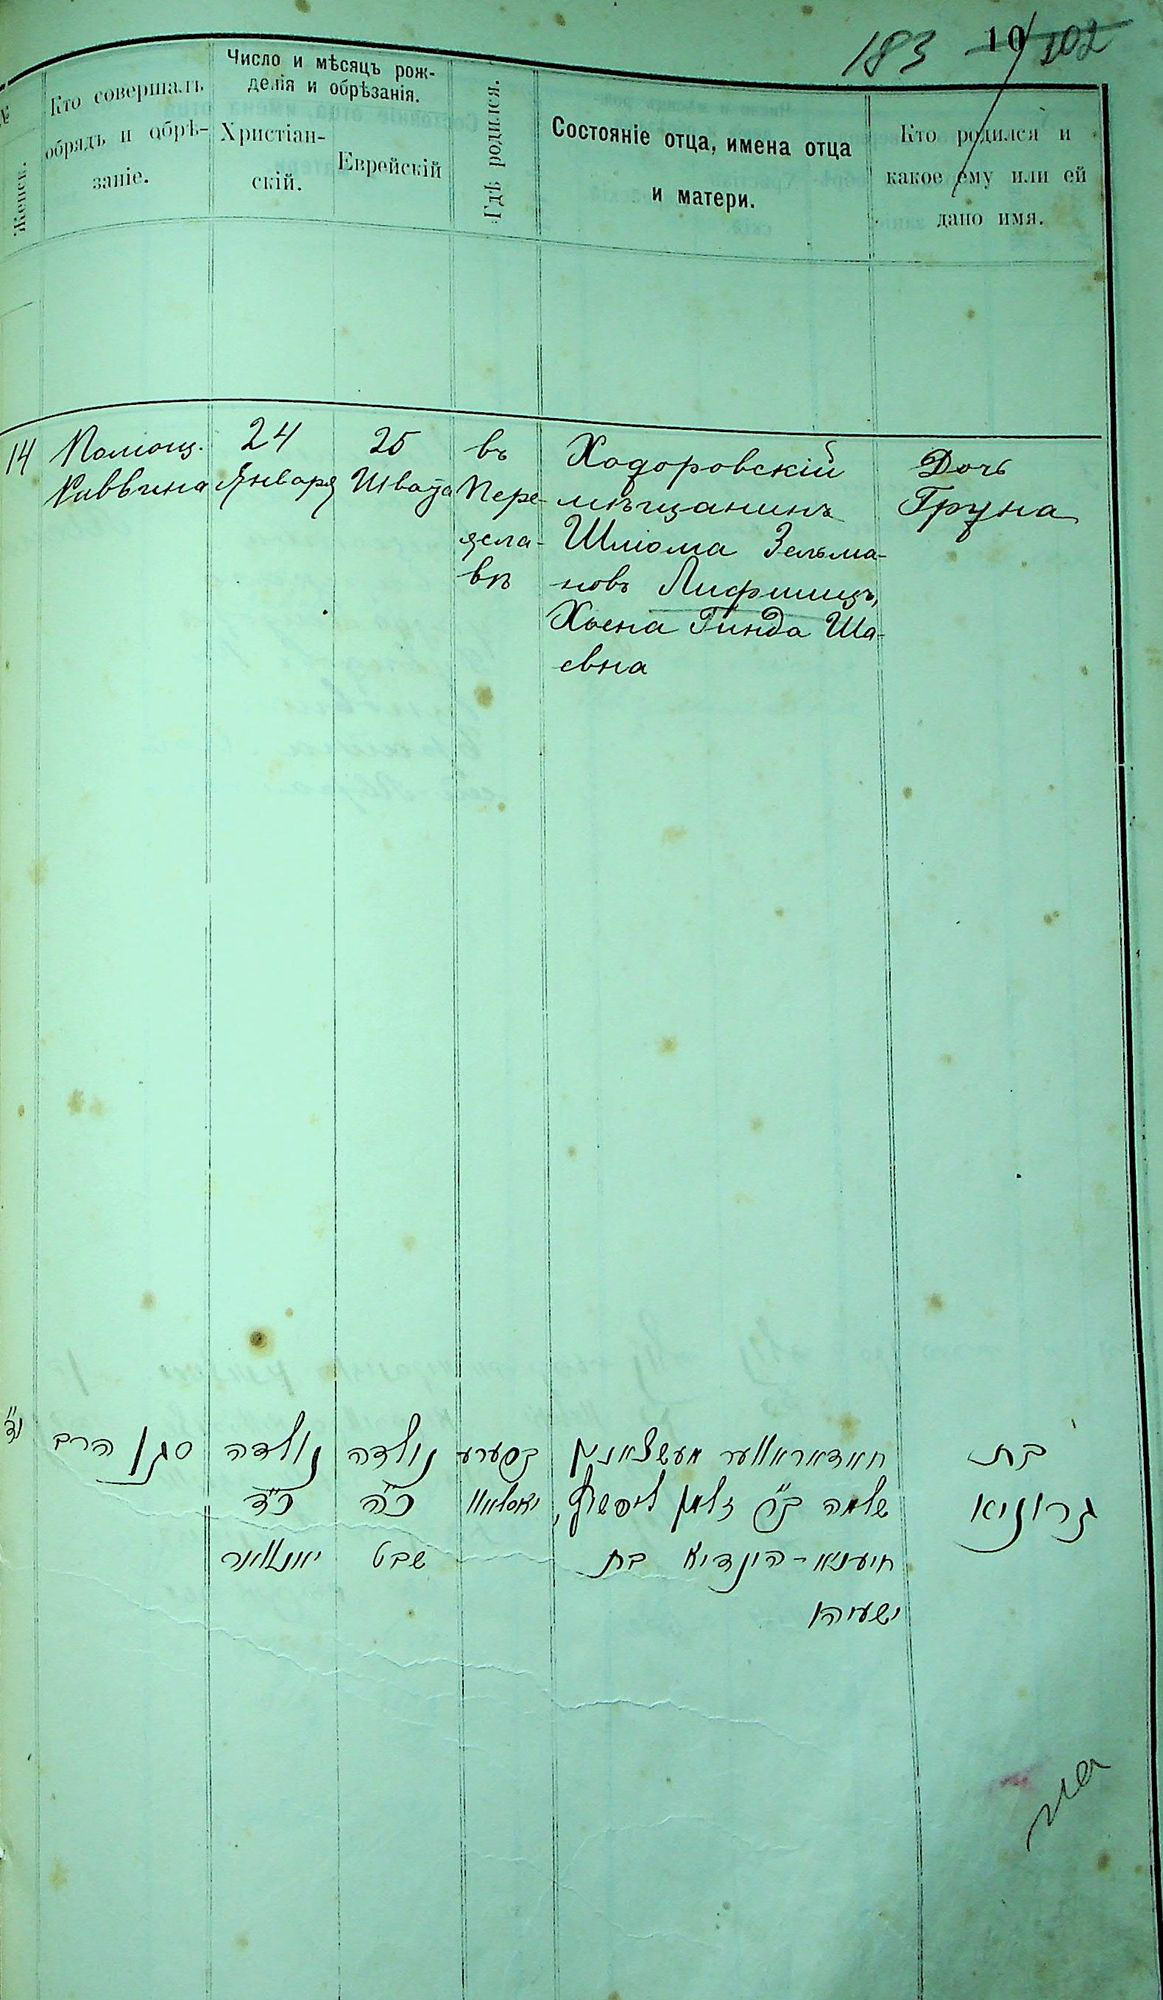 183 10 102
№
Женск.
Кто совершалъ
обрядъ и обрѣ-
заніе.
Число и мѣсяцъ рож-
денія и обрѣзанія.
Христіан-
скій.
Еврейскій
Гдѣ родился.
Состояніе отца, имена отца
и матери.
Кто родился и
какое ему или ей
дано имя.
14
Помощ.
Раввина
24
Января
25
Швата
въ
Пере-
ясла-
вѣ
Ходоровскій
мѣщанинъ
Шліома Зельма-
новъ Лифшицъ,
Хаена Гинда Ша-
евна
Дочь
Груна
י"ד
סגן הרב
נולדה
כ"ד
יאנואר
נולדה
כ"ה
שבט
בפערע
יאסלאוו
חאדאראווער מעשצאנין
שלמה ב"ר זלמן ליפשיץ,
חיענא-הינדיא בת
ישעיהו
בת
גרוניא